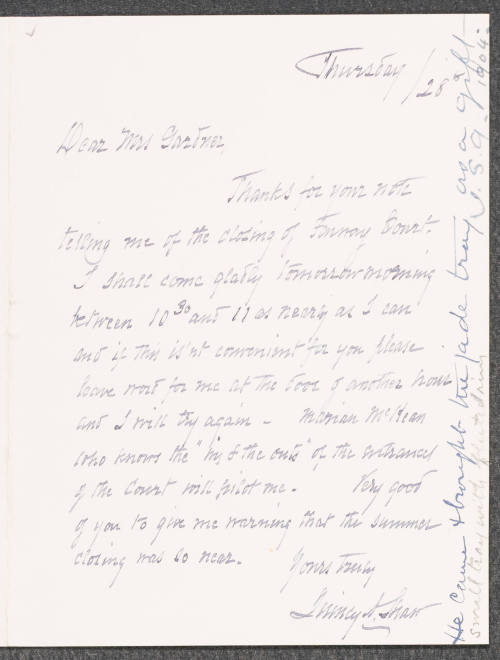 Thursday / 28th
Dear Mrs Gardner,
Thanks for your note
telling me of the closing of Fenway Court.
I shall come gladly tomorrow morning
between 10 30 and 11 as nearly as I can
and if this is'nt convenient for you please
leave word for me at the door of another hour
and I will try again - Marian McKean
who knows the "ins & the outs" of the entrances
of the Court will pilot me. Very good
of you to give me warning that the summer
closing was so near.
Yours truly
Quincy A. Shaw
He came & brought the jade tray as a gift
I. S. G. 1904.
small tray with